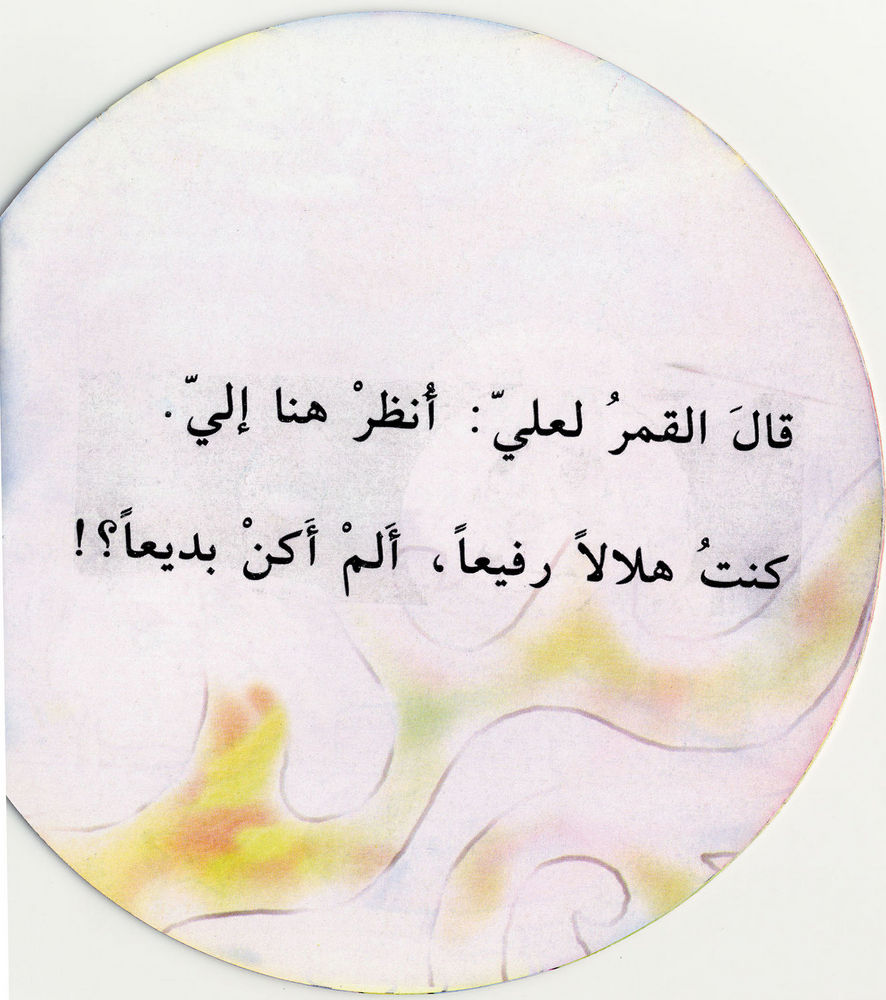 قالَ القمرُ لعليّ: أُنظرْ هنا إليّ.
كنتُ هلالاً رفيعاً، أَلمْ أَكنْ بديعاً؟!